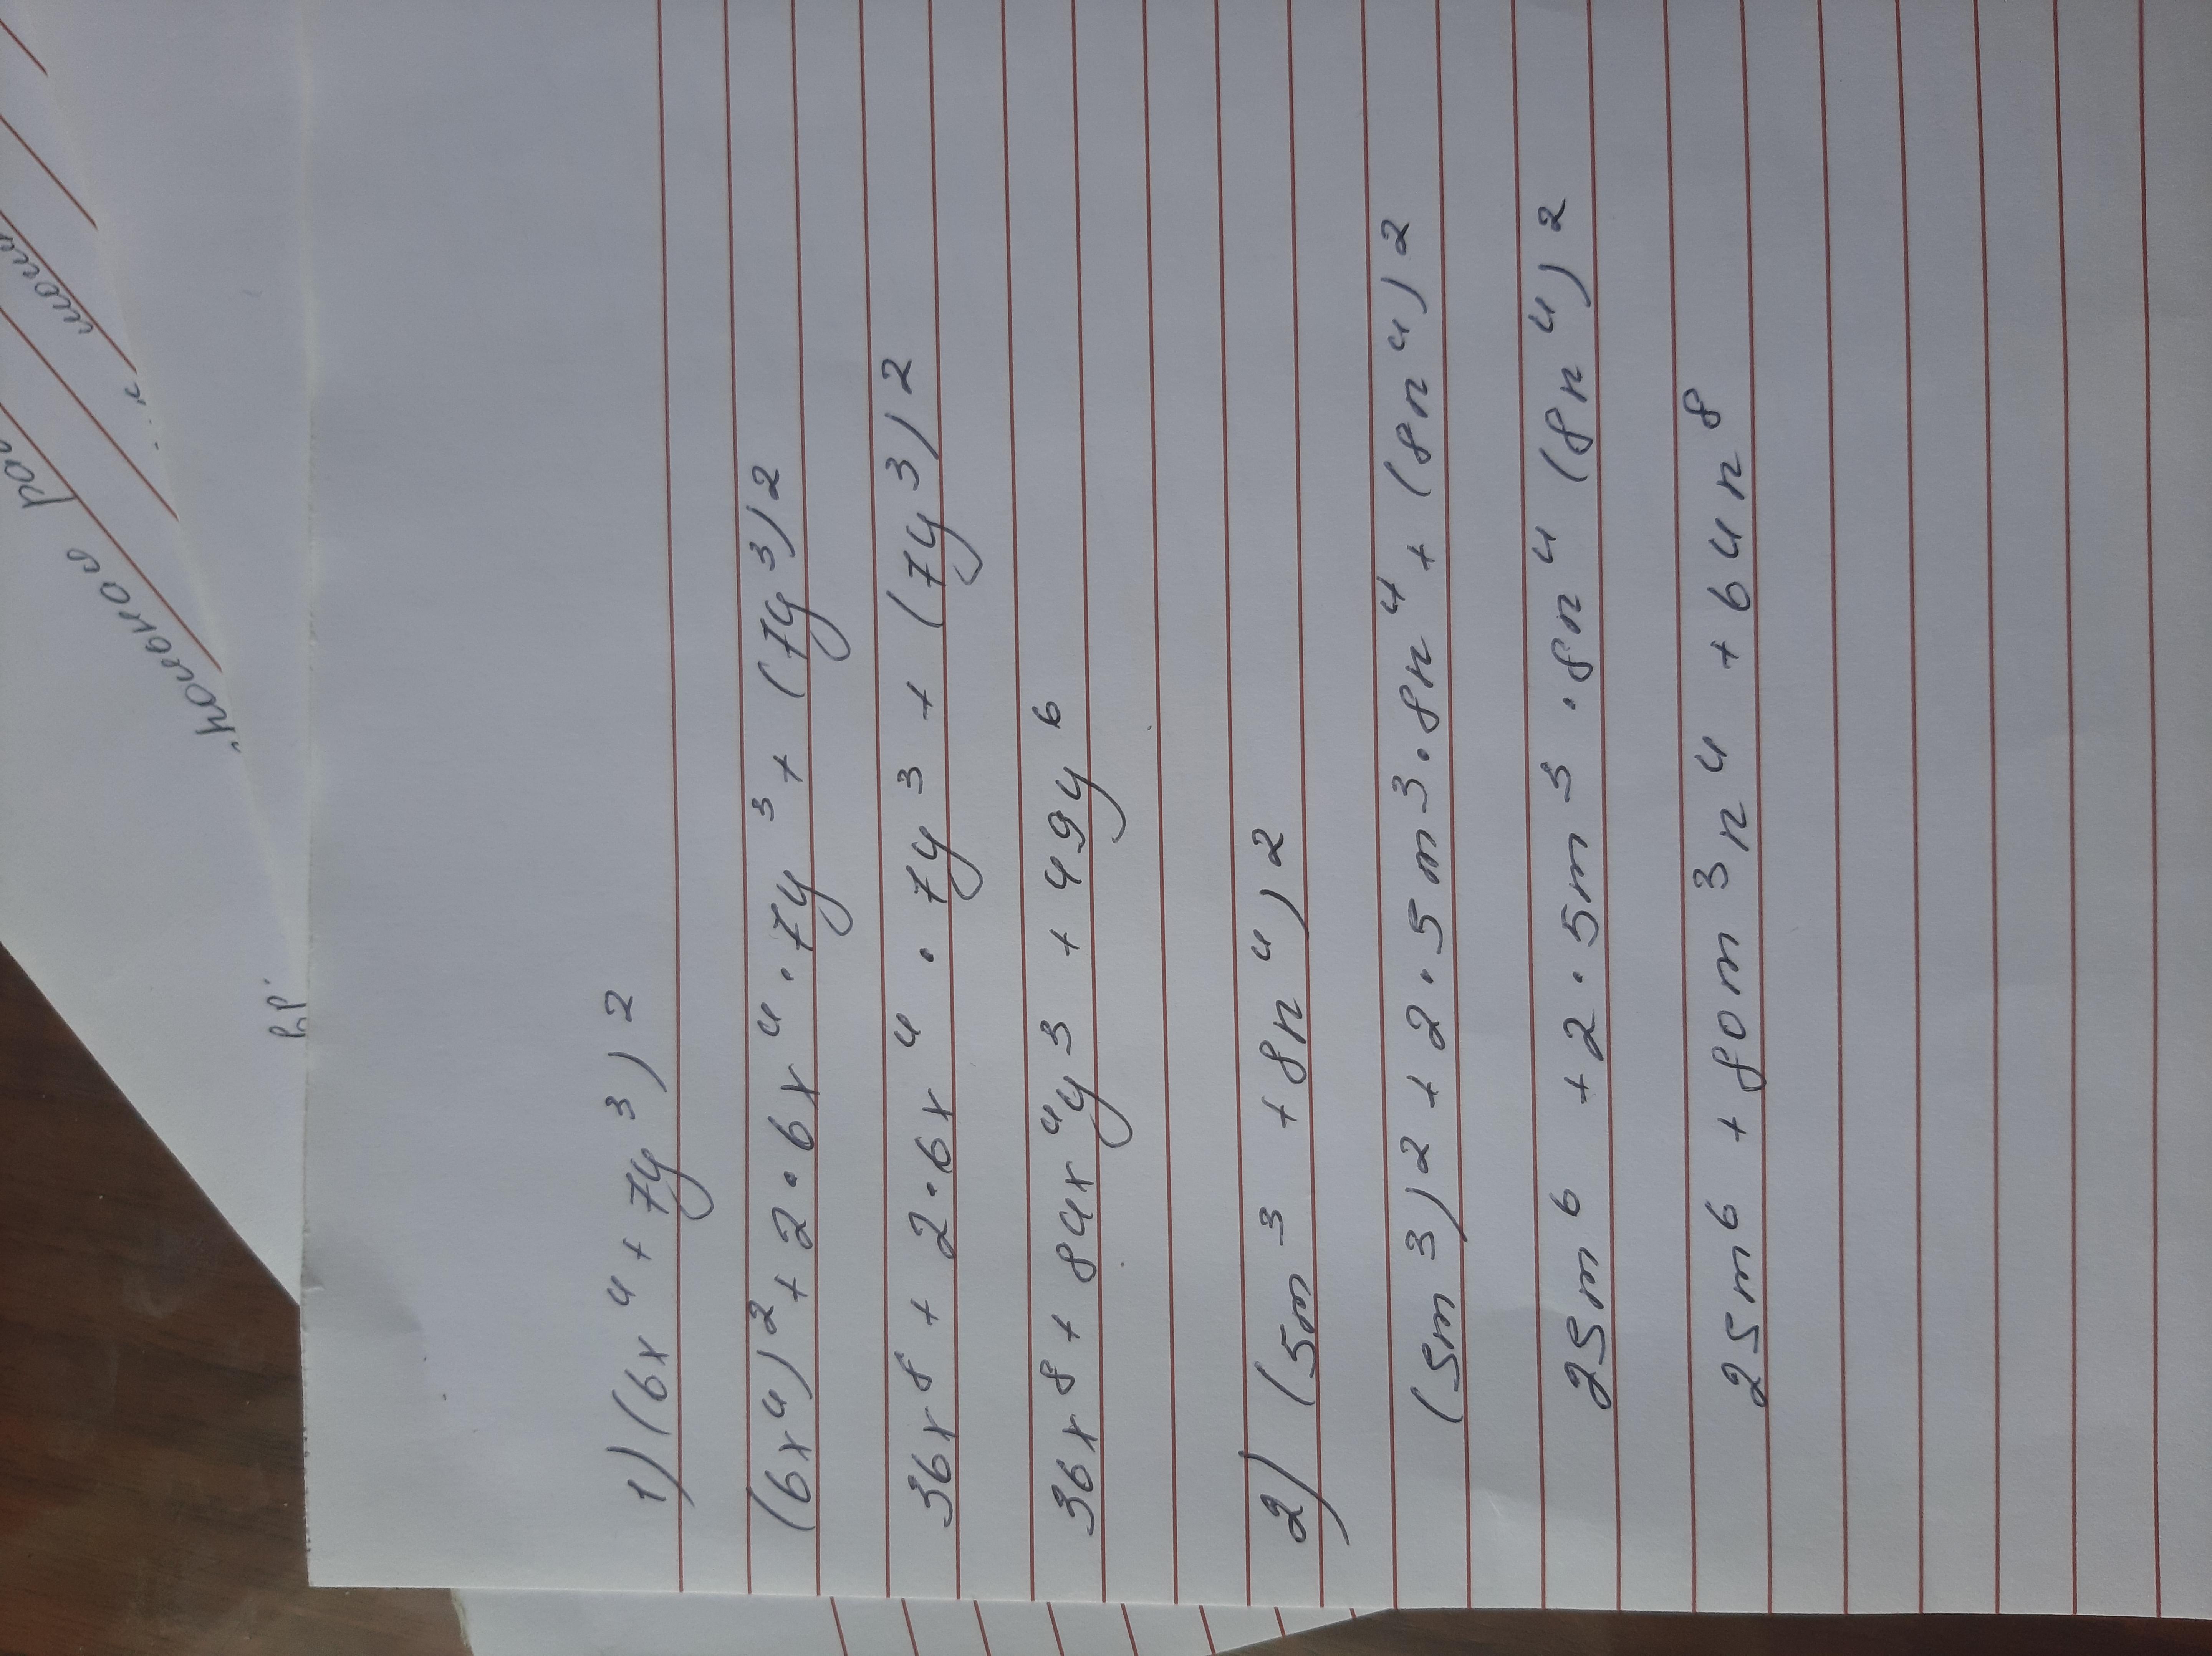 1) (6x⁴ + 7y³)2
(6x⁴)² + 2 · 6x⁴ · 7y³ + (7y³)2
36x⁸ + 2 · 6x⁴ · 7y³ + (7y³)2
36x⁸ + 84x⁴y³ + 49y⁶
2) (5m³ + 8n⁴)2
(5m³)2 + 2 · 5m³ · 8n⁴ + (8n⁴)2
25m⁶ + 2 · 5m³ · 8n⁴ (8n⁴)2
25m⁶ + 80m³n⁴ + 64n⁸